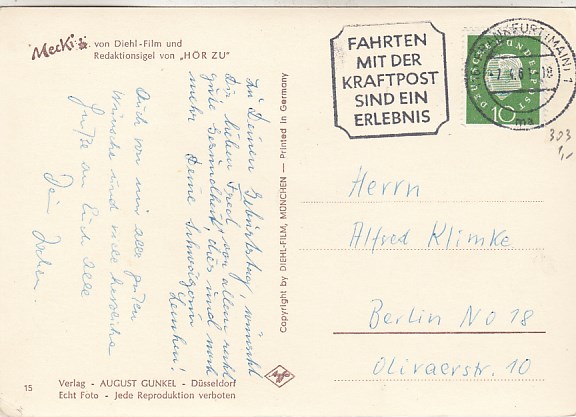 Mecki
von Diehl-Film und
Redaktionsigel von „HÖR ZU"
FAHRTEN
MIT DER
KRAFTPOST
SIND EIN
ERLEBNIS
FRANKFURT (MAIN) 1
DEUTSCHE BUNDESPOST
10
ma
303
1,-
Zu Deinem Geburtstag, wünscht
Dir, lieber Fred, vor allem recht
gute Gesundheit, dies und noch
mehr Deine Schwägerin
Lenchen!
Auch von mir alle guten
Wünsche und viele herzliche
Grüße an Euch alle
Dein Jochen.
Copyright by DIEHL-FILM, MÜNCHEN — Printed in Germany
Herrn
Alfred Klimke
Berlin No 18
Olivaerstr. 10
Agfa
15
Verlag - AUGUST GUNKEL - Düsseldorf
Echt Foto - Jede Reproduktion verboten